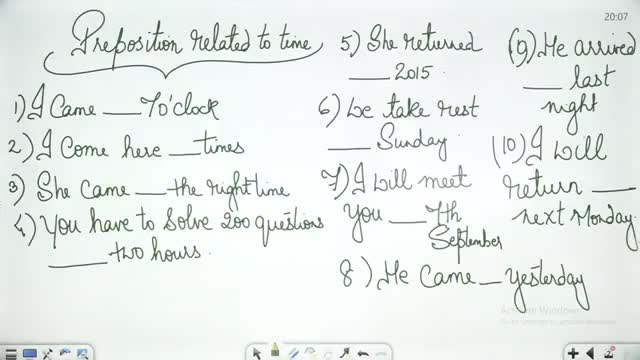 20:07
Preposition related to time
1) I Came ___ 7o'clock
2) I Come here ___ times
3) She Came ___ the right time
4) You have to Solve 200 questions
___ two hours.
5) She returned
___ 2015.
6) We take rest
___ Sunday.
7) I will meet
you ___ 7th
September
8) He Came _ yesterday
(9) He arrived
___ last
night
(10) I will
return ___
next Monday.
Activate Windows